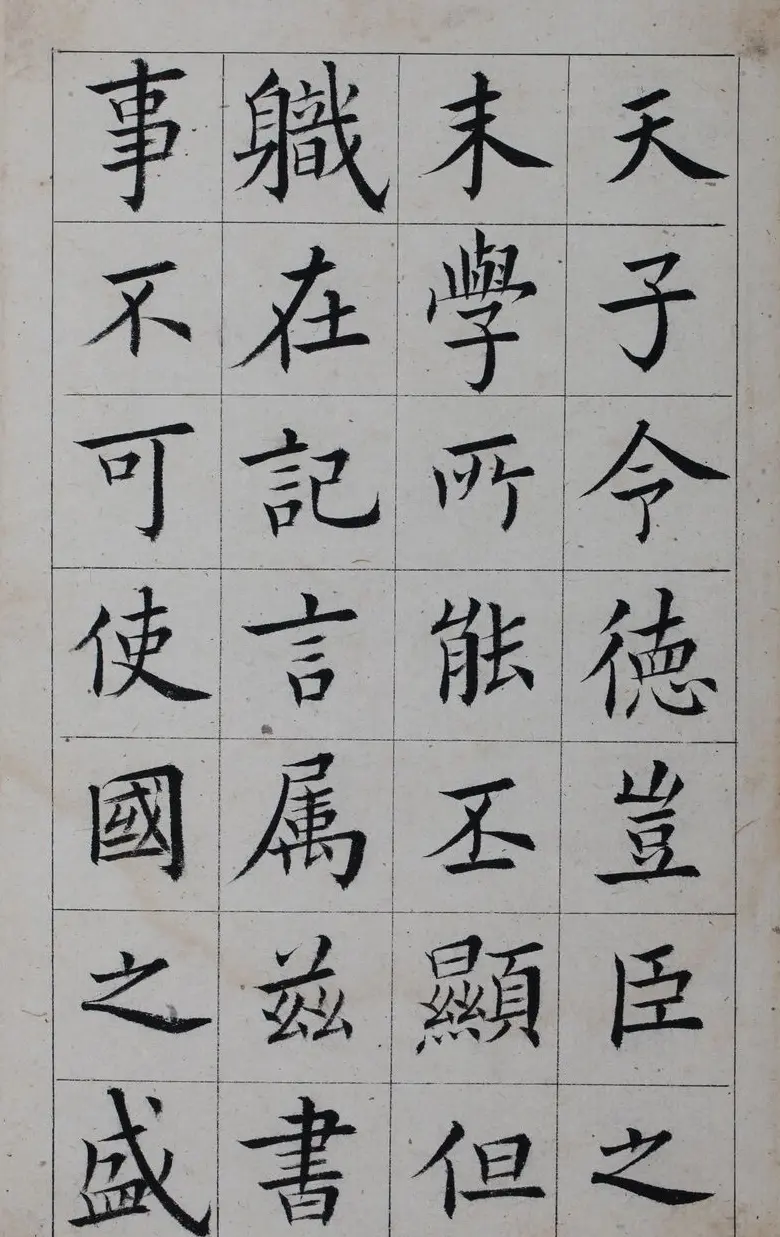 天子令德豈臣之
末學所能丕顯但
軄在記言属茲書
事不可使國之盛